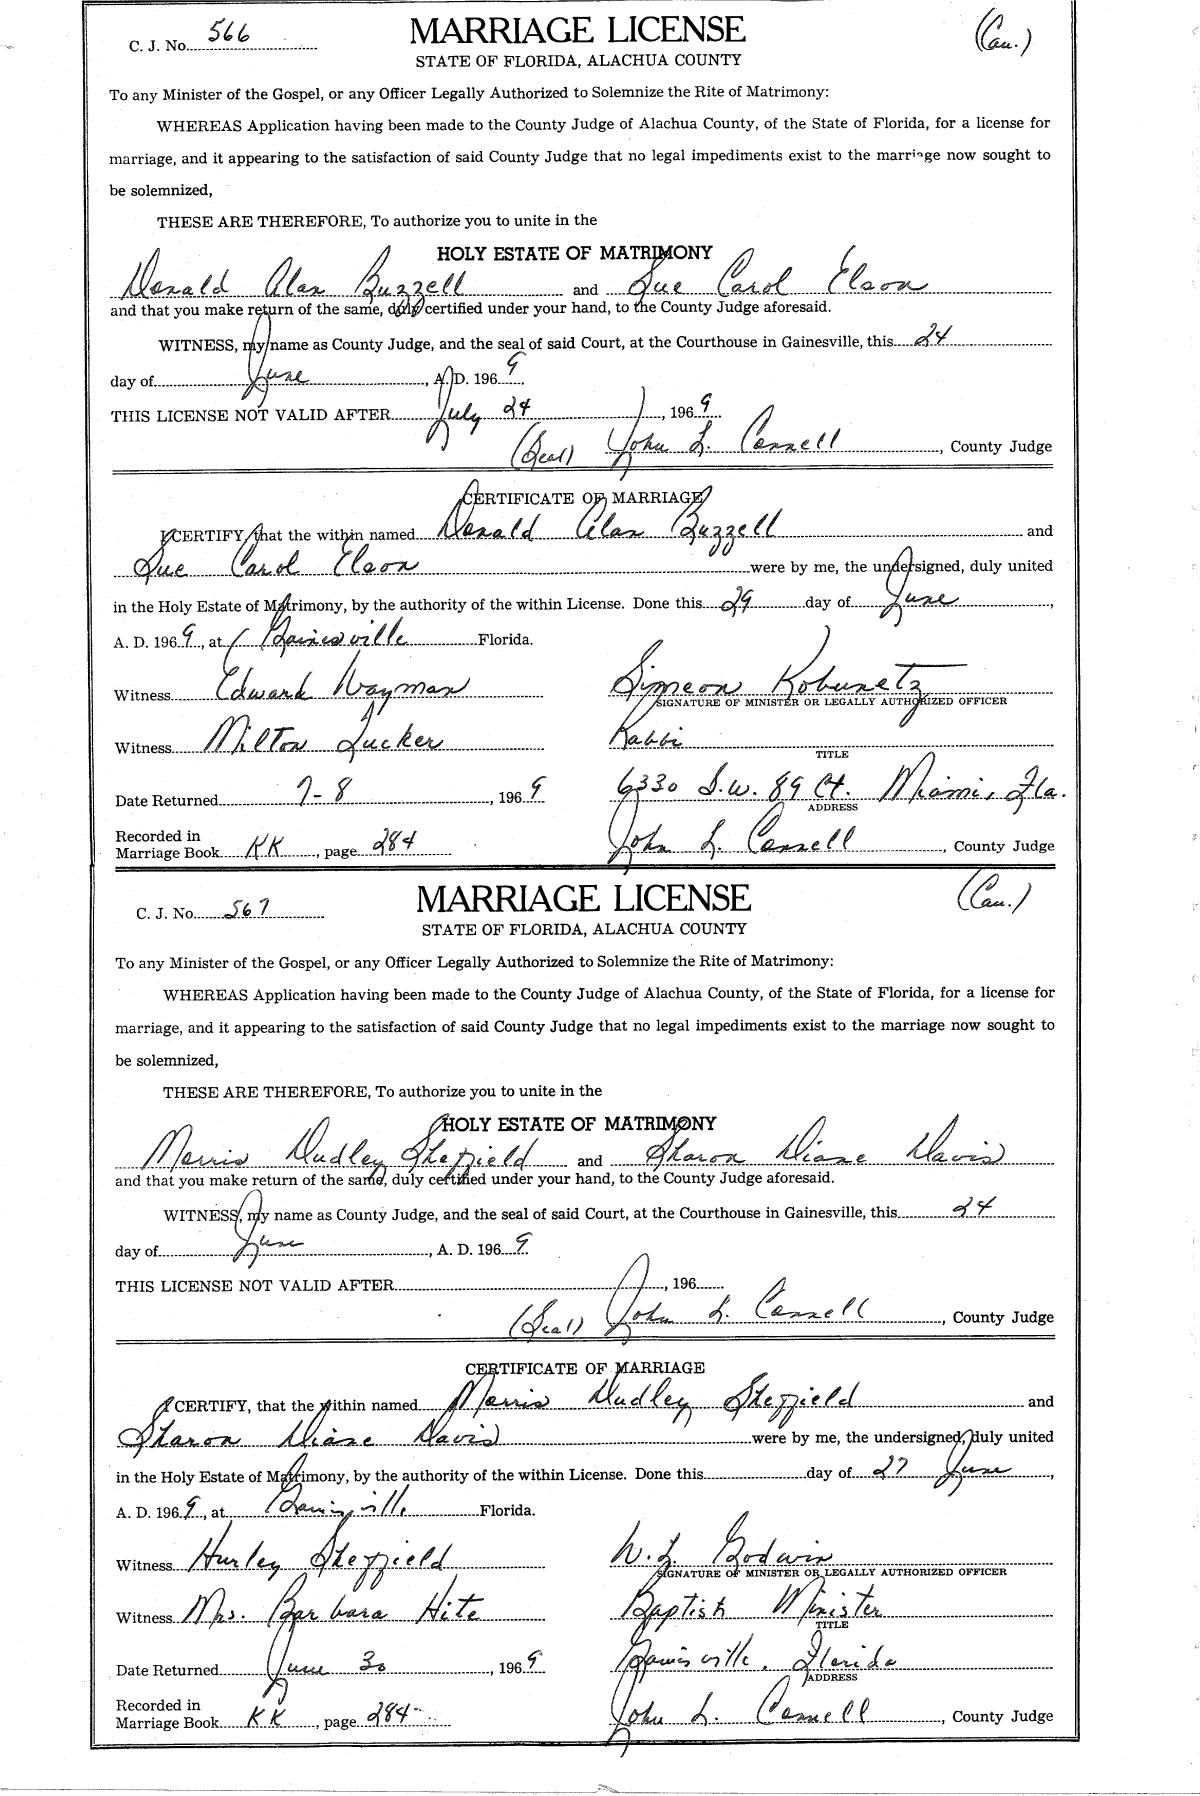 C. J. No. 566 MARRIAGE LICENSE (Cau.)
STATE OF FLORIDA, ALACHUA COUNTY
To any Minister of the Gospel, or any Officer Legally Authorized to Solemnize the Rite of Matrimony:
WHEREAS Application having been made to the County Judge of Alachua County, of the State of Florida, for a license for
marriage, and it appearing to the satisfaction of said County Judge that no legal impediments exist to the marriage now sought to
be solemnized,
THESE ARE THEREFORE, To authorize you to unite in the
HOLY ESTATE OF MATRIMONY
Donald Alan Buzzell and Sue Carol Elson
and that you make return of the same, duly certified under your hand, to the County Judge aforesaid.
WITNESS, my name as County Judge, and the seal of said Court, at the Courthouse in Gainesville, this 24
day of June, A. D. 1969
THIS LICENSE NOT VALID AFTER July 24, 1969
(Seal) John L. Connell, County Judge
CERTIFICATE OF MARRIAGE
I CERTIFY, that the within named Donald Alan Buzzell and
Sue Carol Elson were by me, the undersigned, duly united
in the Holy Estate of Matrimony, by the authority of the within License. Done this 29 day of June,
A. D. 1969, at Gainesville Florida.
Witness Edward Wayman Simeon Kobunetz
SIGNATURE OF MINISTER OR LEGALLY AUTHORIZED OFFICER
Witness Milton Zucker Rabbi
TITLE
Date Returned 7-8, 1969 6330 S.W. 89 Ct. Miami, Fla.
ADDRESS
Recorded in
Marriage Book KK, page 284 John L. Connell, County Judge
C. J. No. 567 MARRIAGE LICENSE (Cau.)
STATE OF FLORIDA, ALACHUA COUNTY
To any Minister of the Gospel, or any Officer Legally Authorized to Solemnize the Rite of Matrimony:
WHEREAS Application having been made to the County Judge of Alachua County, of the State of Florida, for a license for
marriage, and it appearing to the satisfaction of said County Judge that no legal impediments exist to the marriage now sought to
be solemnized,
THESE ARE THEREFORE, To authorize you to unite in the
HOLY ESTATE OF MATRIMONY
Morris Dudley Sheffield and Sharon Diane Davis
and that you make return of the same, duly certified under your hand, to the County Judge aforesaid.
WITNESS, my name as County Judge, and the seal of said Court, at the Courthouse in Gainesville, this 24
day of June, A. D. 1969
THIS LICENSE NOT VALID AFTER, 196
(Seal) John L. Connell, County Judge
CERTIFICATE OF MARRIAGE
I CERTIFY, that the within named Morris Dudley Sheffield and
Sharon Diane Davis were by me, the undersigned, duly united
in the Holy Estate of Matrimony, by the authority of the within License. Done this day of 27 June,
A. D. 1969, at Gainesville Florida.
Witness Hurley Sheffield W. L. Godwin
SIGNATURE OF MINISTER OR LEGALLY AUTHORIZED OFFICER
Witness Mrs. Barbara Hite Baptist Minister
TITLE
Date Returned June 30, 1969 Gainesville, Florida
ADDRESS
Recorded in
Marriage Book KK, page 284 John L. Connell, County Judge